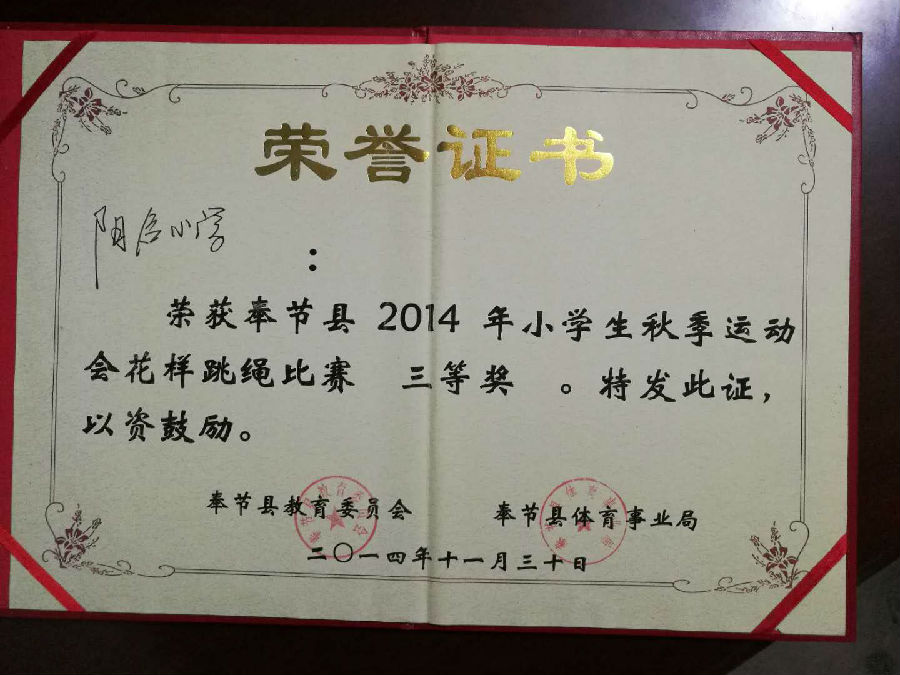 荣誉证书
小学
：
荣获奉节县 2014 年小学生秋季运动
会花样跳绳比赛 三等奖 。特发此证，
以资鼓励。
奉节县教育委员会 奉节县体育事业局
二〇一四年十一月三十日